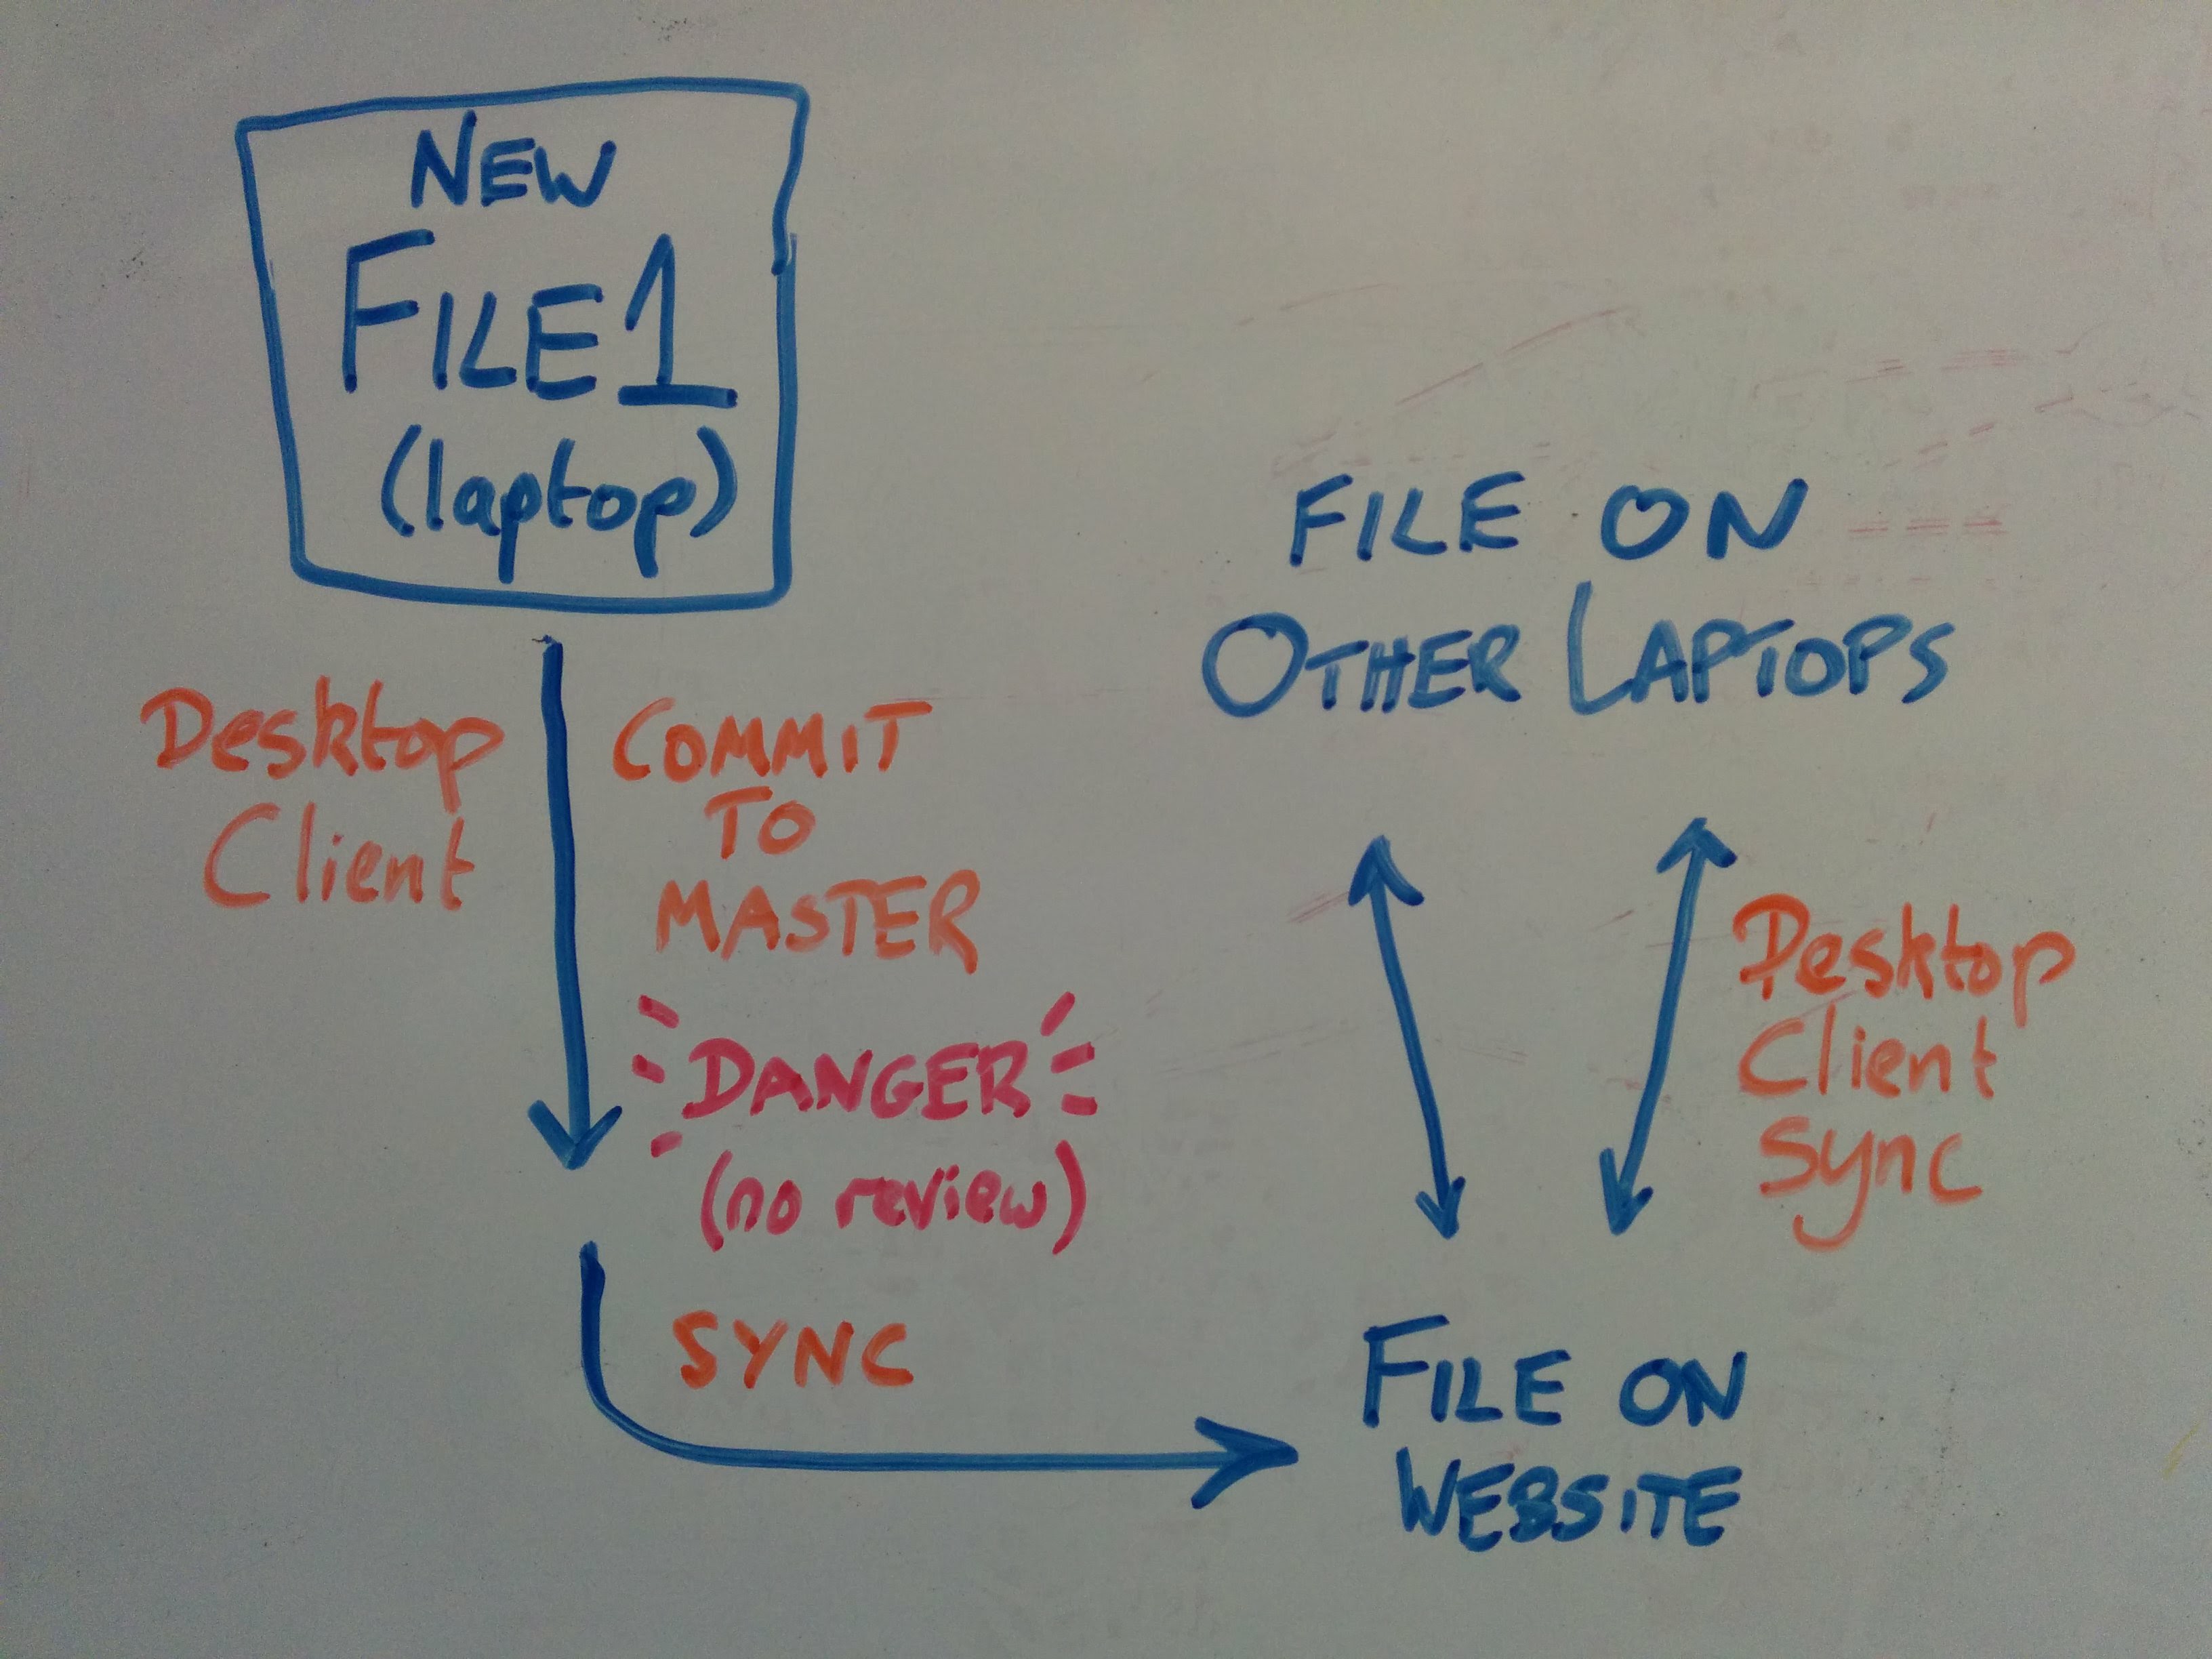 NEW
FILE1
(laptop)
Desktop
Client
COMMIT
TO
MASTER
DANGER
(no review)
SYNC
FILE ON
OTHER LAPTOPS
Desktop
Client
Sync
FILE ON
WEBSITE